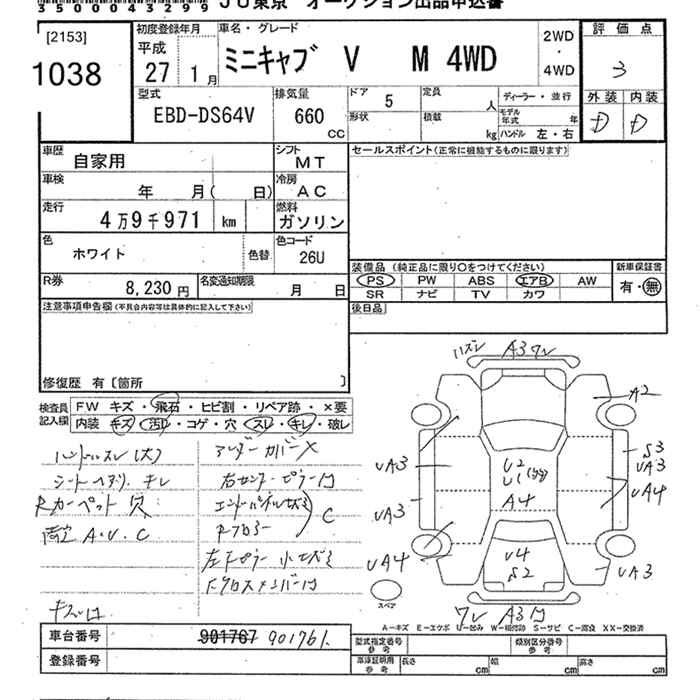 35000043299 JU東京 オークション出品申込書
[2153]
1038
初度登録年月
平成
27 1月
車名・グレード
ミニキャブ V M 4WD
2WD
・
4WD
評価点
3
外装 内装
D D
型式
EBD-DS64V
排気量
660
CC
ドア 5
形状
定員 人
積載 kg
ディーラー・並行
モデル年式 年
ハンドル 左・右
車歴 自家用
シフト MT
車検 年 月( 日)
冷房 AC
走行 4万9千971 km
燃料 ガソリン
色 ホワイト 色替
色コード 26U
R券 8,230円
名変通知期限 月 日
セールスポイント(正常に機能するものに限ります)
装備品 (純正品に限り○をつけてください)
PS PW ABS エアB AW
SR ナビ TV カワ
新車保証書
有・無
後日品
注意事項申告欄(不具合内容等は具体的に記入して下さい)
修復歴 有〔箇所 〕
検査員記入欄
FW キズ・飛石・ヒビ割・リペア跡・×要
内装 キズ・汚レ・コゲ・穴・スレ・キレ・破レ
ハンドルスレ(大)
シートヘタリ、キレ
Rカーペット穴
荷室 A・U・C
アンダーカバー×
右センターピラー凹
Rフロアー
C
ハズレ A3ワレ
A2
UA3
S3
UA3
UA4
UA3
UA4
UA3
U2
A4
U4
S2
ワレ A3凹
スペア
A-キズ E-エクボ U-凹み W-補修跡 S-サビ C-腐食 XX-交換済
車台番号 901767 901761
登録番号
型式指定番号
参考
類別区分番号
参考
車庫証明用
参考
長さ cm 幅 cm 高さ cm